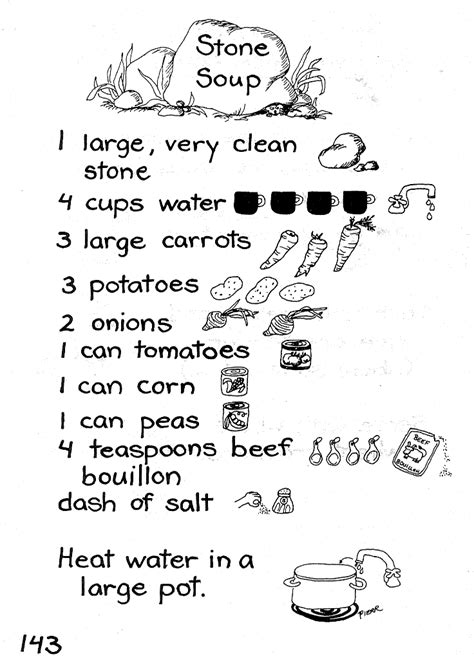 Stone
Soup
1 large, very clean
stone
4 cups water
3 large carrots
3 potatoes
2 onions
1 can tomatoes
1 can corn
1 can peas
4 teaspoons beef
bouillon
BEEF
BOUILLON
dash of salt
Heat water in a
large pot.
143